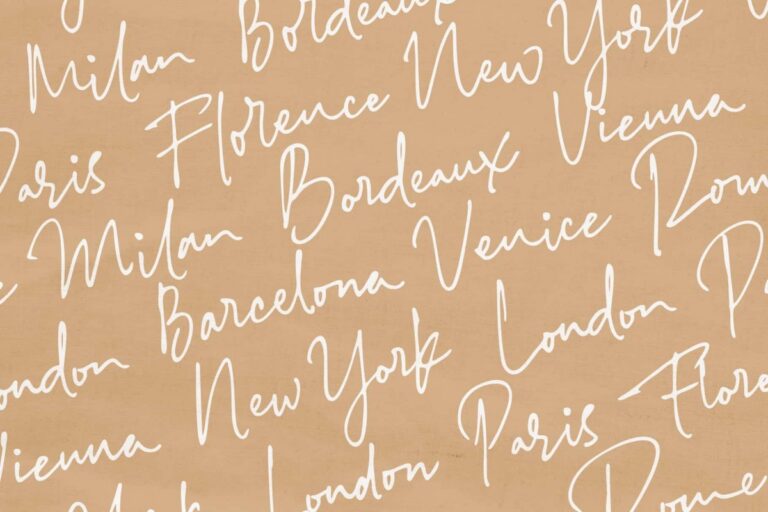 Milan Bordeaux
Florence New York
Paris
Bordeaux Vienna
Milan
Venice Rom
Barcelona
London P
ondon
New York
Paris Flore
Vienna
London
Rome
York